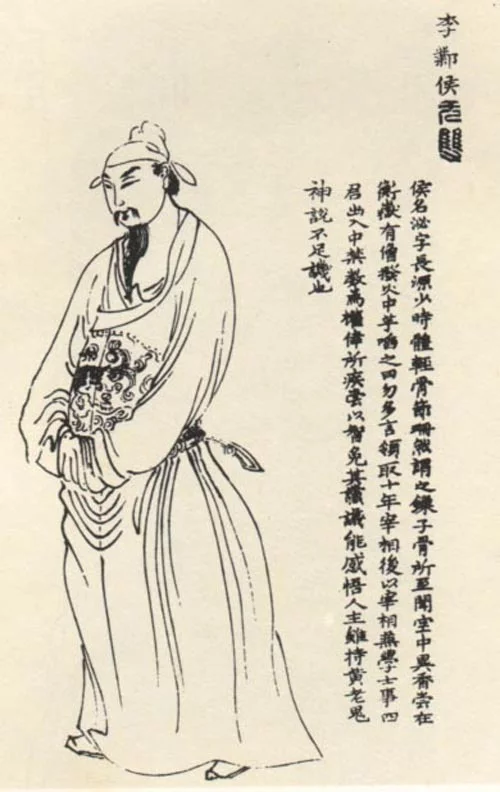 李鄴侯
侯名泌字長源少時體輕骨節珊然謂之鎖子骨所至聞室中異香嘗在
衡嶽有僧撥火中芋啗之曰勿多言領取十年宰相後以宰相兼學士事四
君出入中禁數為權倖所疾嘗以智免其讜議能感悟人主雖持黃老鬼
神說不足譏也